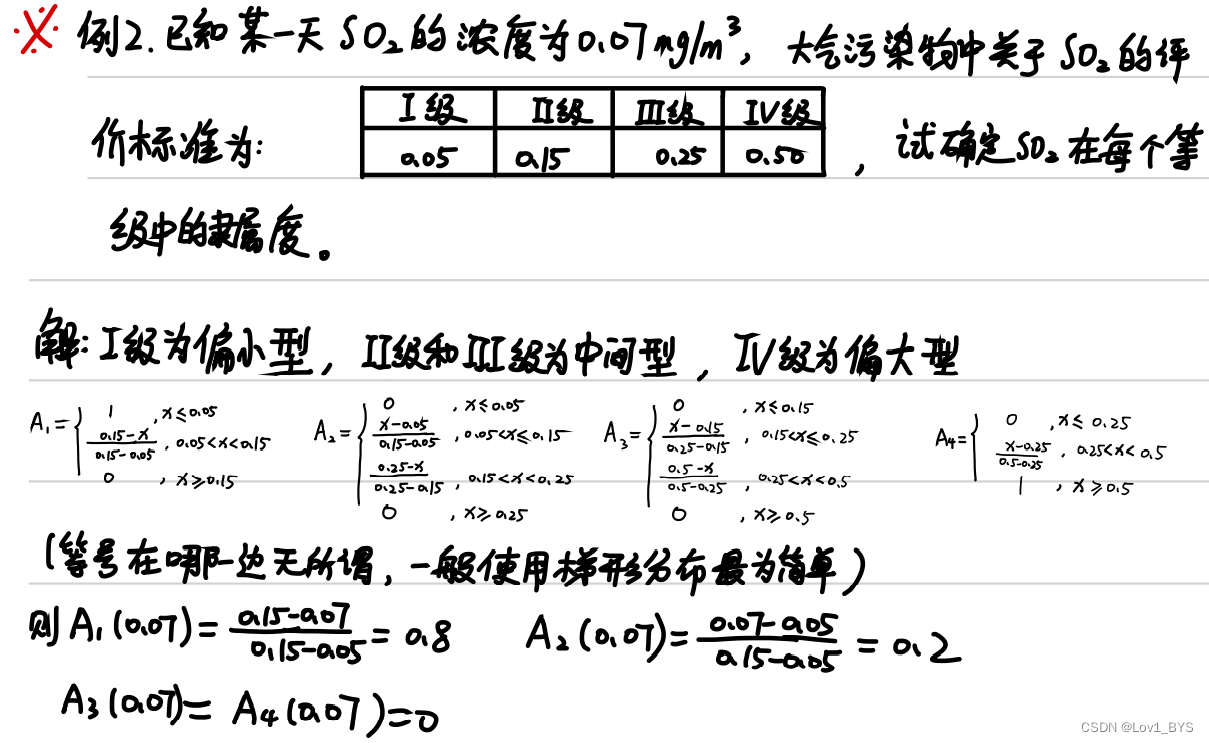 ※ 例2. 已知某一天 SO₂ 的浓度为 0.07 mg/m³, 大气污染物中关于 SO₂ 的评
价标准为:
I级 II级 III级 IV级
0.05 0.15 0.25 0.50
, 试确定 SO₂ 在每个等
级中的隶属度。
解: I级为偏小型, II级和III级为中间型, IV级为偏大型
A₁ = { 1 , x≤0.05
(0.15-x)/(0.15-0.05) , 0.05<x<0.15
0 , x≥0.15
A₂ = { 0 , x≤0.05
(x-0.05)/(0.15-0.05) , 0.05<x≤0.15
(0.25-x)/(0.25-0.15) , 0.15<x<0.25
0 , x≥0.25
A₃ = { 0 , x≤0.15
(x-0.15)/(0.25-0.15) , 0.15<x≤0.25
(0.5-x)/(0.5-0.25) , 0.25<x<0.5
0 , x≥0.5
A₄ = { 0 , x≤0.25
(x-0.25)/(0.5-0.25) , 0.25<x<0.5
1 , x≥0.5
(等号在哪一边无所谓, 一般使用梯形分布最为简单)
则 A₁(0.07) = (0.15-0.07)/(0.15-0.05) = 0.8 A₂(0.07) = (0.07-0.05)/(0.15-0.05) = 0.2
A₃(0.07) = A₄(0.07) = 0
CSDN @Lov1_BYS